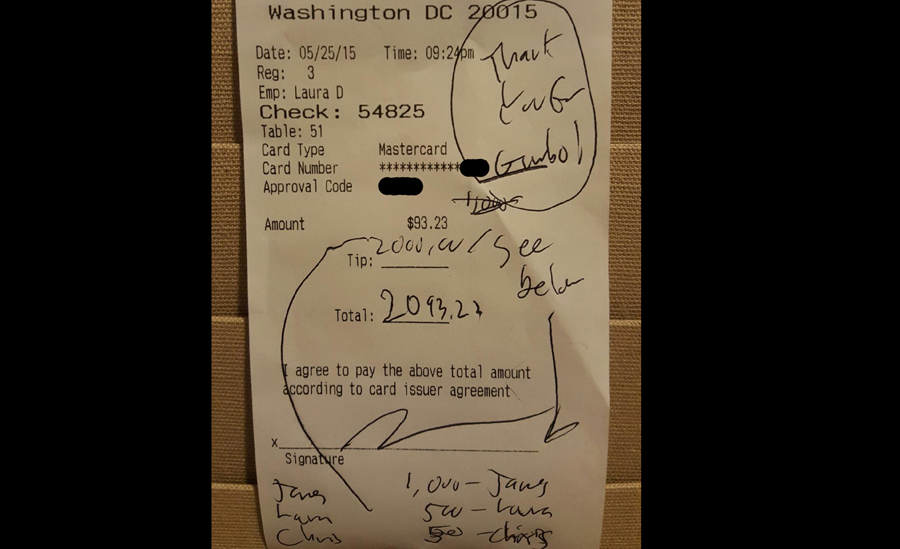 Washington DC 20015
Date: 05/25/15 Time: 09:24pm
Reg: 3
Emp: Laura D
Check: 54825
Table: 51
Card Type Mastercard
Card Number ************
Approval Code
Thank
You for
Gumbo!
1,000
Amount $93.23
Tip: 2000.00 / See
below
Total: 2093.23
I agree to pay the above total amount
according to card issuer agreement
x
Signature
1,000 -
500 - Laura
Chris 500 - Chris